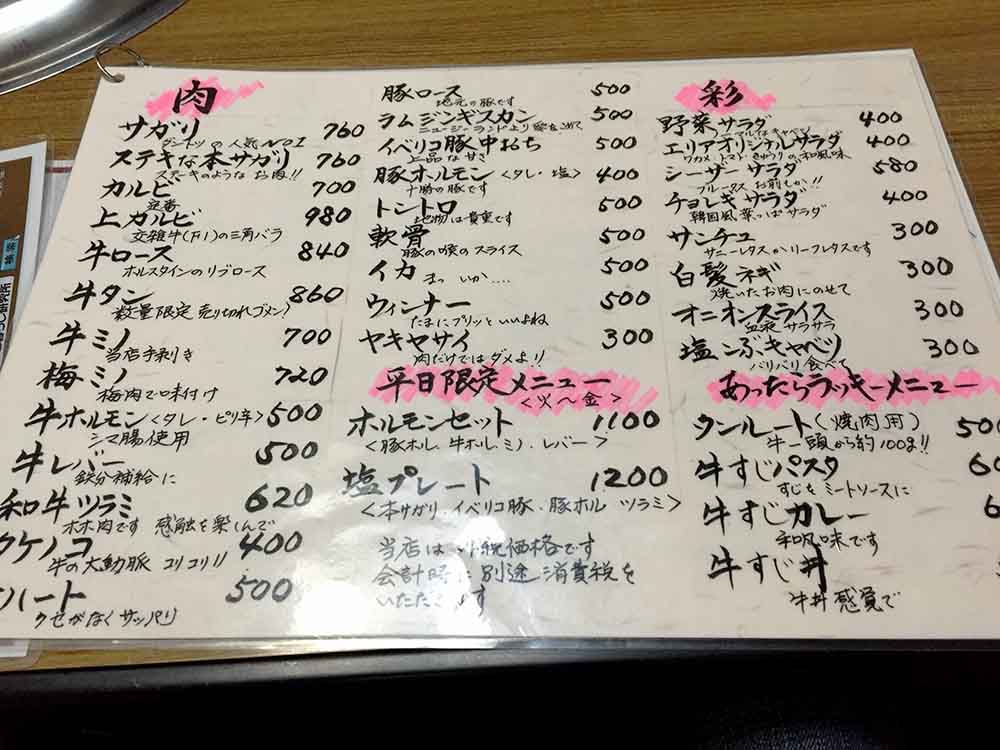 肉
サガリ 760
ダントツの人気NO1
ステキな本サガリ 760
ステーキのようなお肉!!
カルビ 700
定番
上カルビ 980
交雑牛(F1)の三角バラ
牛ロース 840
ホルスタインのリブロース
牛タン 860
数量限定 売り切れゴメン
牛ミノ 700
当店手剥き
梅ミノ 720
梅肉で味付け
牛ホルモン<タレ・ピリ辛> 500
シマ腸使用
牛レバー 500
鉄分補給に
和牛ツラミ 620
ホホ肉です 感触を楽しんで
タケノコ 400
牛の大動脈 コリコリ!!
ハート 500
クセがなくサッパリ
豚ロース 500
地元の豚です
ラムジンギスカン 500
ニュージーランドより
イベリコ豚中おち 500
上品な甘さ
豚ホルモン<タレ・塩> 400
十勝の豚です
トントロ 500
地物は貴重です
軟骨 500
豚の喉のスライス
イカ 500
まっ いか....
ウィンナー 500
たまにプリッといいよね
ヤキヤサイ 300
肉だけではダメよ!!
平日限定メニュー
<火〜金>
ホルモンセット 1100
<豚ホル.牛ホル.ミノ.レバー>
塩プレート 1200
<本サガリ・イベリコ豚・豚ホル ツラミ>
当店は 税価格です
会計時に別途 消費税を
いただきます
彩
野菜サラダ 400
エリアオリジナルサラダ 400
ワカメ トマト きゅうりの和風味
シーザーサラダ 580
ブルータス お前もか!!
チョレギサラダ 400
韓国風 葉っぱサラダ
サンチュ 300
サニーレタスかリーフレタスです
白髪ネギ 300
焼いたお肉にのせて
オニオンスライス 300
血液 サラサラ
塩こぶキャベツ 300
バリバリ食べて
あったらラッキーメニュー
タンルート(焼肉用) 500
牛一頭から約100g!!
牛すじパスタ
すじをミートソースに
牛すじカレー
和風味です
牛すじ丼
牛丼感覚で